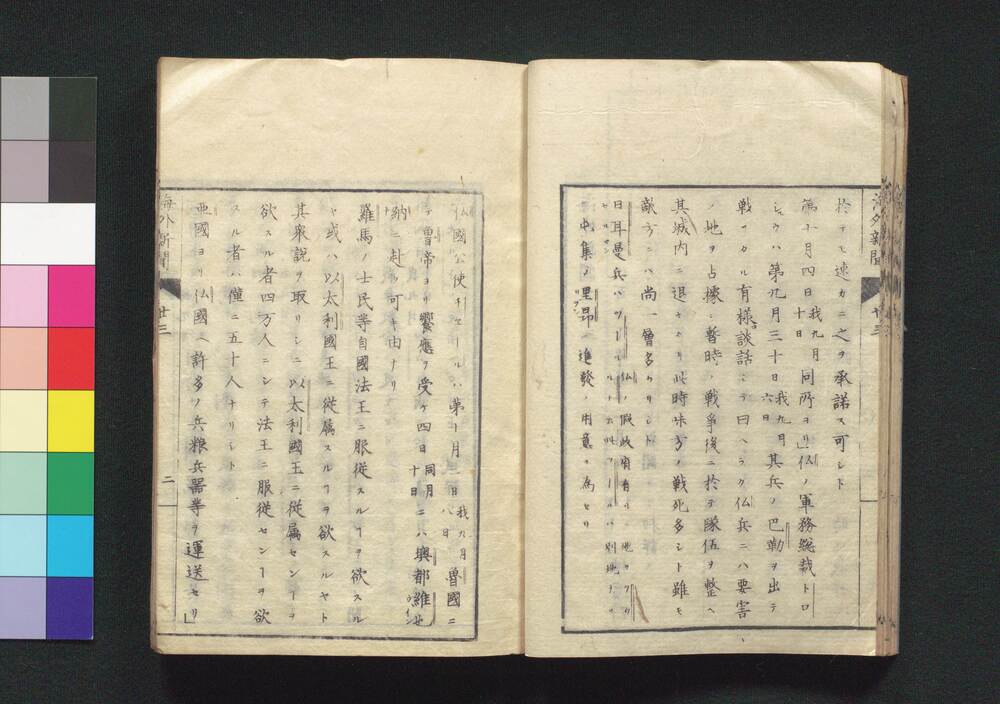 海外新聞
於テモ速カニ之ヲ承諾ス可シト
第十月四日我九月十日同所ヨリ」仏ノ軍務総裁トロ
シュウハ第九月三十日我九月六日其兵ノ巴勒ヲ出テ
戦ツカル有様ヲ談話シテ曰ヘラク仏兵ニハ要害
ノ地ヲ占據シ暫時ノ戦争後ニ於テ隊伍ヲ整ヘ
其城内ニ退キタリ此時味方ノ戦死多シト雖モ
敵方ニハ尚一層多カリシト
日耳曼兵ハ
屯集ノ里昂ヘ進発ノ用意ヲ為セリ
仏國公使チエールハ第十月二日我九月八日魯國ニ
テ魯帝ヨリ饗應ヲ受ケ四日同月十日ニハ墺都維也
納ニ赴ク可キ由ナリ
羅馬ノ士民等自國法王ニ服従スルヿヲ欲スル
ヤ或ハ以太利國王ニ従属スルヿヲ欲スルヤト
其衆説ヲ取リシニ以太利國王ニ従属センヿヲ
欲スル者四万人ニシテ法王ニ服従センヿヲ欲
スル者ハ僅ニ五十人ナリシト
亜國ヨリ仏國ヘ許多ノ兵粮兵器等ヲ運送セリ」
海外新聞 廿三 二